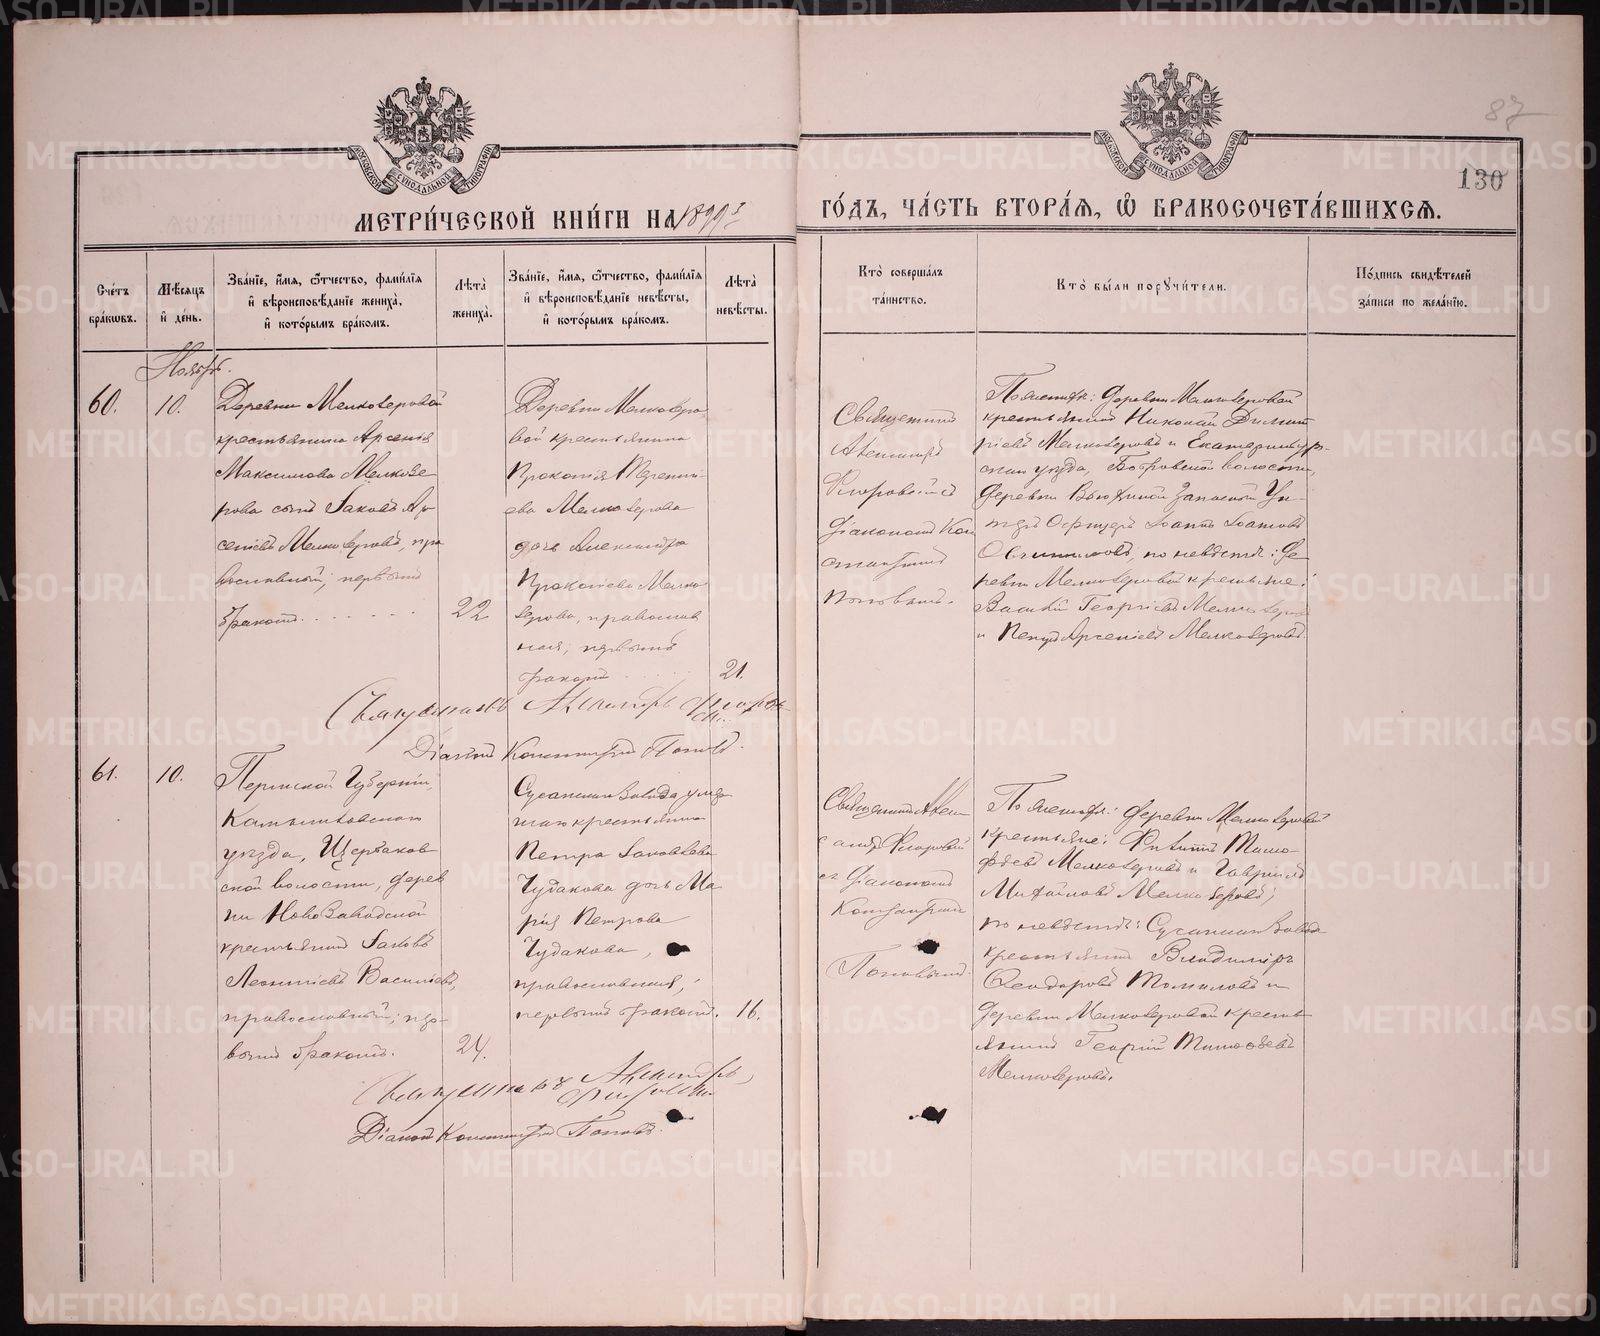 87
130
МЕТРИ́ЧЕСКОЙ КНИ́ГИ НА 1899
ГО́ДЪ, ЧА́СТЬ ВТОРА́Я, Ѽ БРАКОСОЧЕТА́ВШИХСЯ.
Сче́тъ бра́кѡвъ.
Мѣ́сяцъ и҆ де́нь.
Зва́нїе, и҆́мя, ѻ҆́тчество, фами́лїя и҆ вѣроисповѣ́данїе жениха̀, и҆ кото́рымъ бра́комъ.
Лѣ́та жениха̀.
Зва́нїе, и҆́мя, ѻ҆́тчество, фами́лїя и҆ вѣроисповѣ́данїе невѣ́сты, и҆ кото́рымъ бра́комъ.
Лѣ́та невѣ́сты.
Кто̀ соверша́лъ та́инство.
Кто̀ бы́ли порꙋчи́тели.
По́дпись свидѣ́телей за́писи по жела́нїю.
Ноябрь.
60.
10.
Деревни Мелкозеровой
крестьянина Арсенія
Максимова Мелкозе
рова сынъ Іаковъ Ар
сеніевъ Мелкозеровъ, пра
вославный, первымъ
бракомъ
22
Деревни Мелкозеро
вой крестьянина
Прокопія Теренти
ева Мелкозерова
дочь Александра
Прокопіева Мелко
зерова, православ
ная, первымъ
бракомъ
21.
Священникъ
Александръ
Флоровскій съ
діакономъ Кон
стантиномъ
Поповымъ.
По женихѣ: деревни Мелкозеровой
крестьянинъ Николай Димит
ріевъ Мелкозеровъ и Екатеринбур
скаго уѣзда, Бобровской волости,
деревни Вьюхиной запасный Ун
теръ Офицеръ Іоаннъ Іоанновъ
Овчинниковъ, по невѣстѣ: де
ревни Мелкозеровой крестьяне:
Василій Георгіевъ Мелкозеровъ
и Петръ Арсеніевъ Мелкозеровъ.
Священникъ Александръ Флоров
скій.
Діаконъ Константинъ Поповъ.
61.
10.
Пермской Губерніи,
Камышловскаго
уѣзда, Щербаков
ской волости, дерев
ни Новозаводской
крестьянинъ Іаковъ
Леонтіевъ Васильевъ,
православный, пер
вымъ бракомъ.
24.
Сусанскаго Завода умер
шаго крестьянина
Петра Іаковлева
Чудакова дочь Ма
рія Петрова
Чудакова,
православная,
первымъ бракомъ.
16.
Священникъ Алек
сандръ Флоровскій
съ діакономъ
Константиномъ
Поповымъ.
По женихѣ: деревни Мелкозеровой
крестьяне: Филиппъ Тимо
феевъ Мелкозеровъ и Гавріилъ
Михайловъ Мелкозеровъ;
по невѣстѣ: Сусанскаго Завода
крестьянинъ Владиміръ
Ѳеодоровъ Томиловъ и
деревни Мелкозеровой кресть
янинъ Георгій Тимофеевъ
Мелкозеровъ.
Священникъ Александръ
Флоровскій.
Діаконъ Константинъ Поповъ.
METRIKI.GASO-URAL.RU